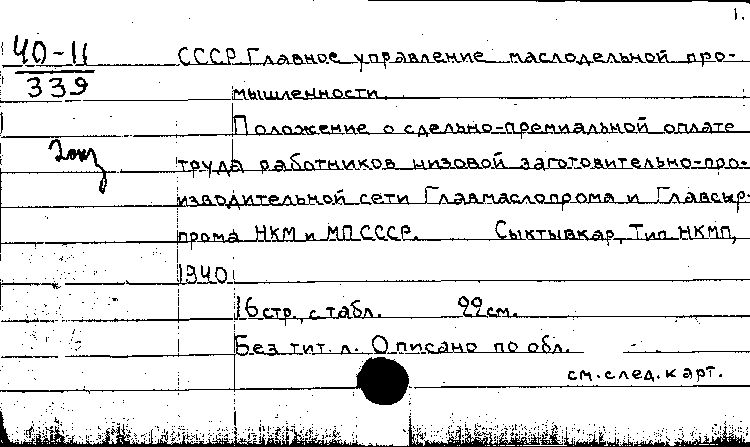 1.
40-11
339
СССР. Главное управление маслодельной про-
мышленности.
Положение о сдельно-премиальной оплате
2 экз
труда работников низовой заготовительно-про-
изводительной сети Главмаслопрома и Главсыр-
прома НКМ и МП СССР. Сыктывкар, Тип. НКМП,
1940
16 стр., с табл. 22 см.
Без тит. л. Описано по обл.
см. след. карт.